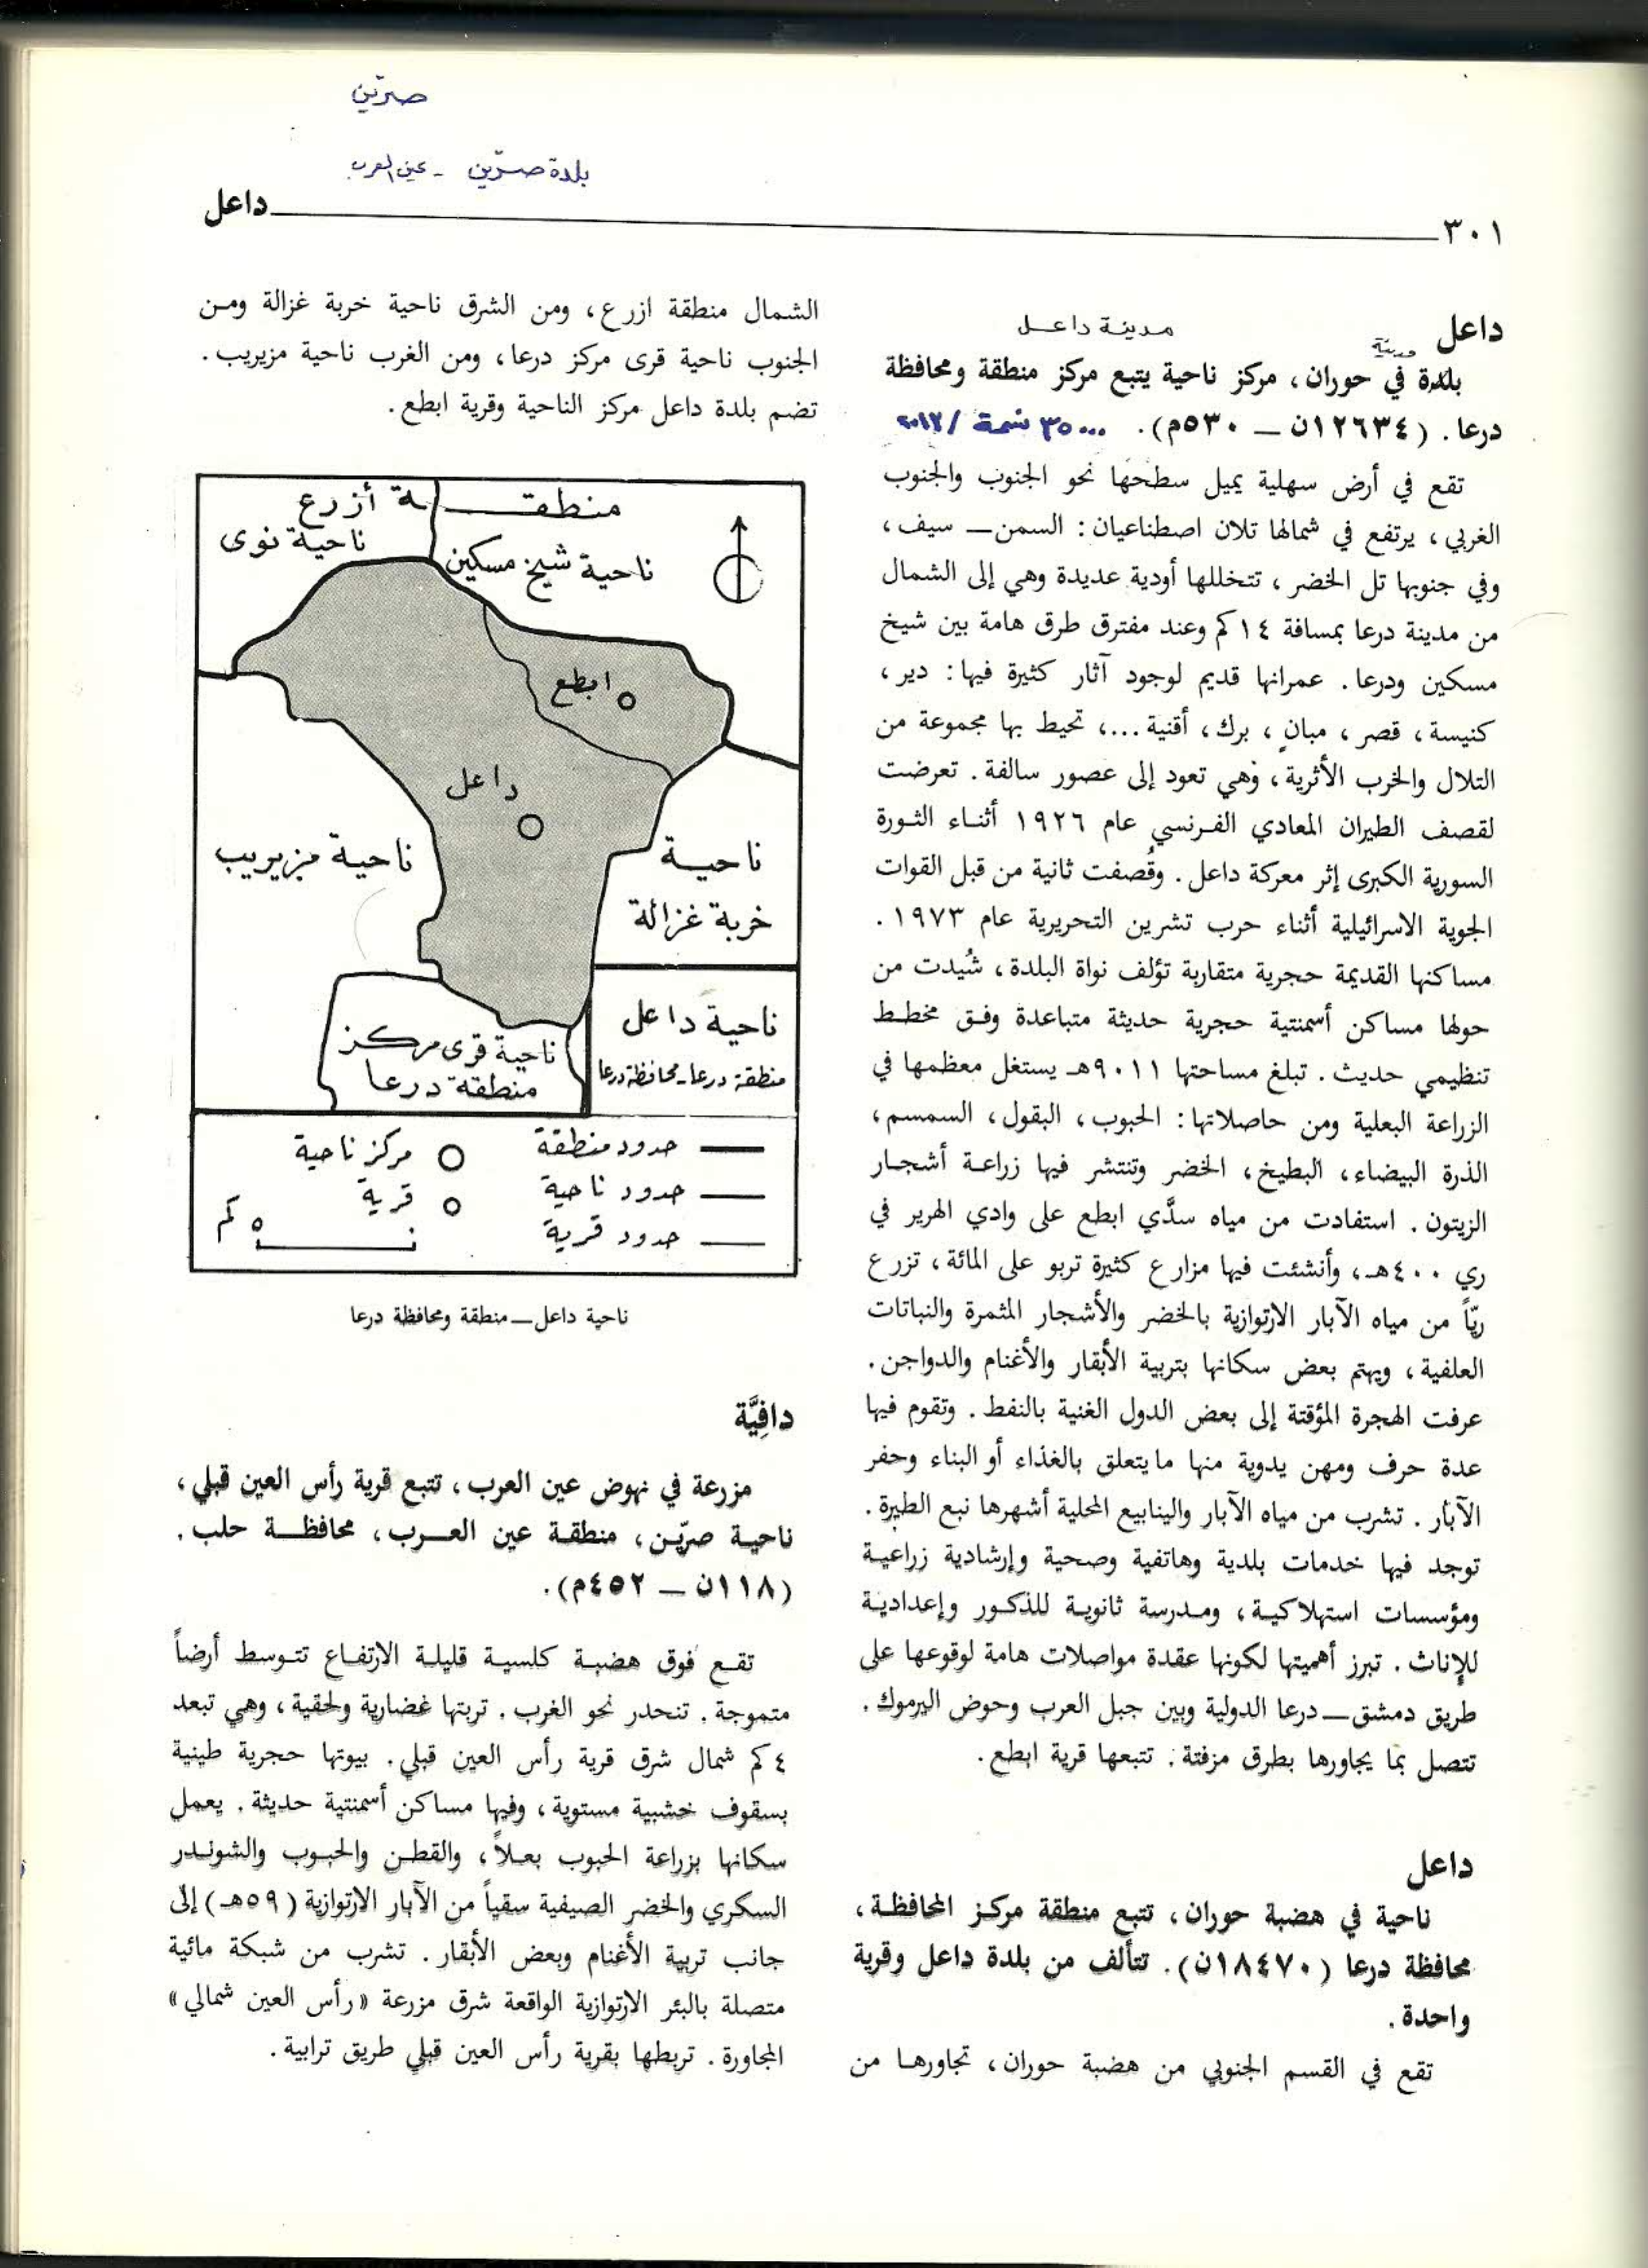 صرّين
بلدة صرّين - عين العرب
داعل
٣٠١
داعل
مدينة داعل
مدينة
بلدة في حوران، مركز ناحية يتبع مركز منطقة ومحافظة
درعا. (١٢٦٣٤ن — ٥٣٠م). ٣٥٠٠٠ نسمة /٢٠١٧
تقع في أرض سهلية يميل سطحها نحو الجنوب والجنوب
الغربي، يرتفع في شمالها تلان اصطناعيان: السمن — سيف،
وفي جنوبها تل الخضر، تتخللها أودية عديدة وهي إلى الشمال
من مدينة درعا بمسافة ١٤كم وعند مفترق طرق هامة بين شيخ
مسكين ودرعا. عمرانها قديم لوجود آثار كثيرة فيها: دير،
كنيسة، قصر، مبانٍ، برك، أقنية ...، تحيط بها مجموعة من
التلال والخرب الأثرية، وهي تعود إلى عصور سالفة. تعرضت
لقصف الطيران المعادي الفرنسي عام ١٩٢٦ أثناء الثورة
السورية الكبرى إثر معركة داعل. وقُصفت ثانية من قبل القوات
الجوية الاسرائيلية أثناء حرب تشرين التحريرية عام ١٩٧٣.
مساكنها القديمة حجرية متقاربة تؤلف نواة البلدة، شُيدت من
حولها مساكن أسمنتية حجرية حديثة متباعدة وفق مخطط
تنظيمي حديث. تبلغ مساحتها ٩٠١١هـ يستغل معظمها في
الزراعة البعلية ومن حاصلاتها: الحبوب، البقول، السمسم،
الذرة البيضاء، البطيخ، الخضر وتنتشر فيها زراعة أشجار
الزيتون. استفادت من مياه سدَّي ابطع على وادي الهرير في
ري ٤٠٠هـ، وأنشئت فيها مزارع كثيرة تربو على المائة، تزرع
ريّاً من مياه الآبار الارتوازية بالخضر والأشجار المثمرة والنباتات
العلفية، ويهتم بعض سكانها بتربية الأبقار والأغنام والدواجن.
عرفت الهجرة المؤقتة إلى بعض الدول الغنية بالنفط. وتقوم فيها
عدة حرف ومهن يدوية منها مايتعلق بالغذاء أو البناء وحفر
الآبار. تشرب من مياه الآبار والينابيع المحلية أشهرها نبع الطيرة.
توجد فيها خدمات بلدية وهاتفية وصحية وإرشادية زراعية
ومؤسسات استهلاكية، ومدرسة ثانوية للذكور وإعدادية
للإناث. تبرز أهميتها لكونها عقدة مواصلات هامة لوقوعها على
طريق دمشق — درعا الدولية وبين جبل العرب وحوض اليرموك.
تتصل بما يجاورها بطرق مزفتة. تتبعها قرية ابطع.
داعل
ناحية في هضبة حوران، تتبع منطقة مركز المحافظة،
محافظة درعا (١٨٤٧٠ن). تتألف من بلدة داعل وقرية
واحدة.
تقع في القسم الجنوبي من هضبة حوران، تجاورها من
الشمال منطقة ازرع، ومن الشرق ناحية خربة غزالة ومن
الجنوب ناحية قرى مركز درعا، ومن الغرب ناحية مزيريب.
تضم بلدة داعل مركز الناحية وقرية ابطع.
منطقـــة أزرع
ناحية نوى
ناحية شيخ مسكين
ابطع
داعل
ناحية مزيريب
ناحية
خربة غزالة
ناحية داعل
منطقة درعا-محافظة درعا
ناحية قرى مركز
منطقة درعا
حدود منطقة
مركز ناحية
حدود ناحية
قرية
حدود قرية
٠ ٥ كم
ناحية داعل — منطقة ومحافظة درعا
دافِيَّة
مزرعة في نهوض عين العرب، تتبع قرية رأس العين قبلي،
ناحية صرّين، منطقة عين العرب، محافظة حلب.
(١١٨ن — ٤٥٢م).
تقع فوق هضبة كلسية قليلة الارتفاع تتوسط أرضاً
متموجة. تنحدر نحو الغرب. تربتها غضارية ولحقية، وهي تبعد
٤كم شمال شرق قرية رأس العين قبلي. بيوتها حجرية طينية
بسقوف خشبية مستوية، وفيها مساكن أسمنتية حديثة. يعمل
سكانها بزراعة الحبوب بعلاً، والقطن والحبوب والشوندر
السكري والخضر الصيفية سقياً من الآبار الارتوازية (٥٩هـ) إلى
جانب تربية الأغنام وبعض الأبقار. تشرب من شبكة مائية
متصلة بالبئر الارتوازية الواقعة شرق مزرعة «رأس العين شمالي»
المجاورة. تربطها بقرية رأس العين قبلي طريق ترابية.